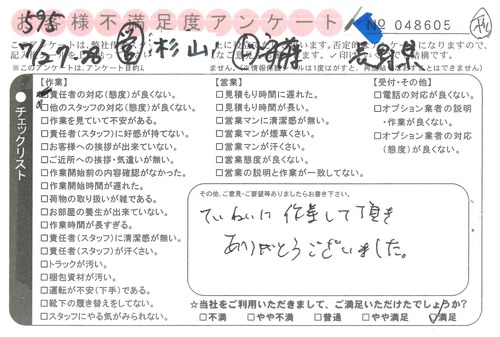 お客様不満足度アンケート
No 048605
595
7/27.28
杉山
長野県
チェックリスト
【作業】
□責任者の対応(態度)が良くない。
□他のスタッフの対応(態度)が良くない。
□作業を見ていて不安がある。
□責任者(スタッフ)に好感が持てない。
□お客様への挨拶が出来ていない。
□ご近所への挨拶・気遣いが無い。
□作業開始前の内容確認がなかった。
□作業開始時間が遅れた。
□荷物の取り扱いが雑である。
□お部屋の養生が出来ていない。
□作業時間が長すぎる。
□責任者(スタッフ)に清潔感が無い。
□責任者(スタッフ)が汗くさい。
□トラックが汚い。
□梱包資材が汚い。
□運転が不安(下手)である。
□靴下の履き替えをしてない。
□スタッフにやる気がみられない。
【営業】
□見積もり時間に遅れた。
□見積もり時間が長い。
□営業マンに清潔感が無い。
□営業マンが煙草くさい。
□営業マンが汗くさい。
□営業態度が良くない。
□営業の説明と作業が一致してない。
【受付・その他】
□電話の対応が良くない。
□オプション業者の説明
・作業が良くない。
□オプション業者の対応
(態度)が良くない。
その他、ご意見・ご要望等ありましたらお書き下さい。
ていねいに作業して頂き
ありがとうございました。
☆当社をご利用いただきまして、ご満足いただけたでしょうか?
□不満 □やや不満 □普通 □やや満足 ☑満足